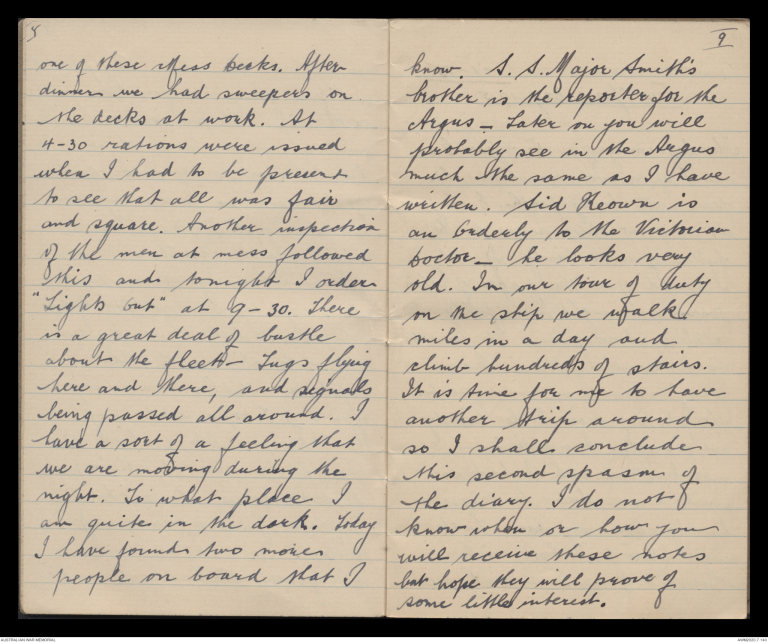 8
one of these Mess Decks. After
dinner we had sweepers on
the decks at work. At
4-30 rations were issued
when I had to be present
to see that all was fair
and square. Another inspection
of the men at mess followed
this and tonight I order
"Lights Out" at 9-30. There
is a great deal of bustle
about the fleet - Tugs flying
here and there, and signals
being passed all around. I
have a sort of a feeling that
we are moving during the
night. To what place I
am quite in the dark. Today
I have found two more
people on board that I
9
know. S. S. Major Smith's
brother is the reporter for the
Argus - Later on you will
probably see in the Argus
much the same as I have
written. Sid Keown is
an Orderly to the Victorian
Doctor - he looks very
old. In our tour of duty
on the ship we walk
miles in a day and
climb hundreds of stairs.
It is time for me to have
another trip around
so I shall conclude
this second spasm of
the diary. I do not
know when or how you
will receive these notes
but hope they will prove of
some little interest.
AUSTRALIAN WAR MEMORIAL